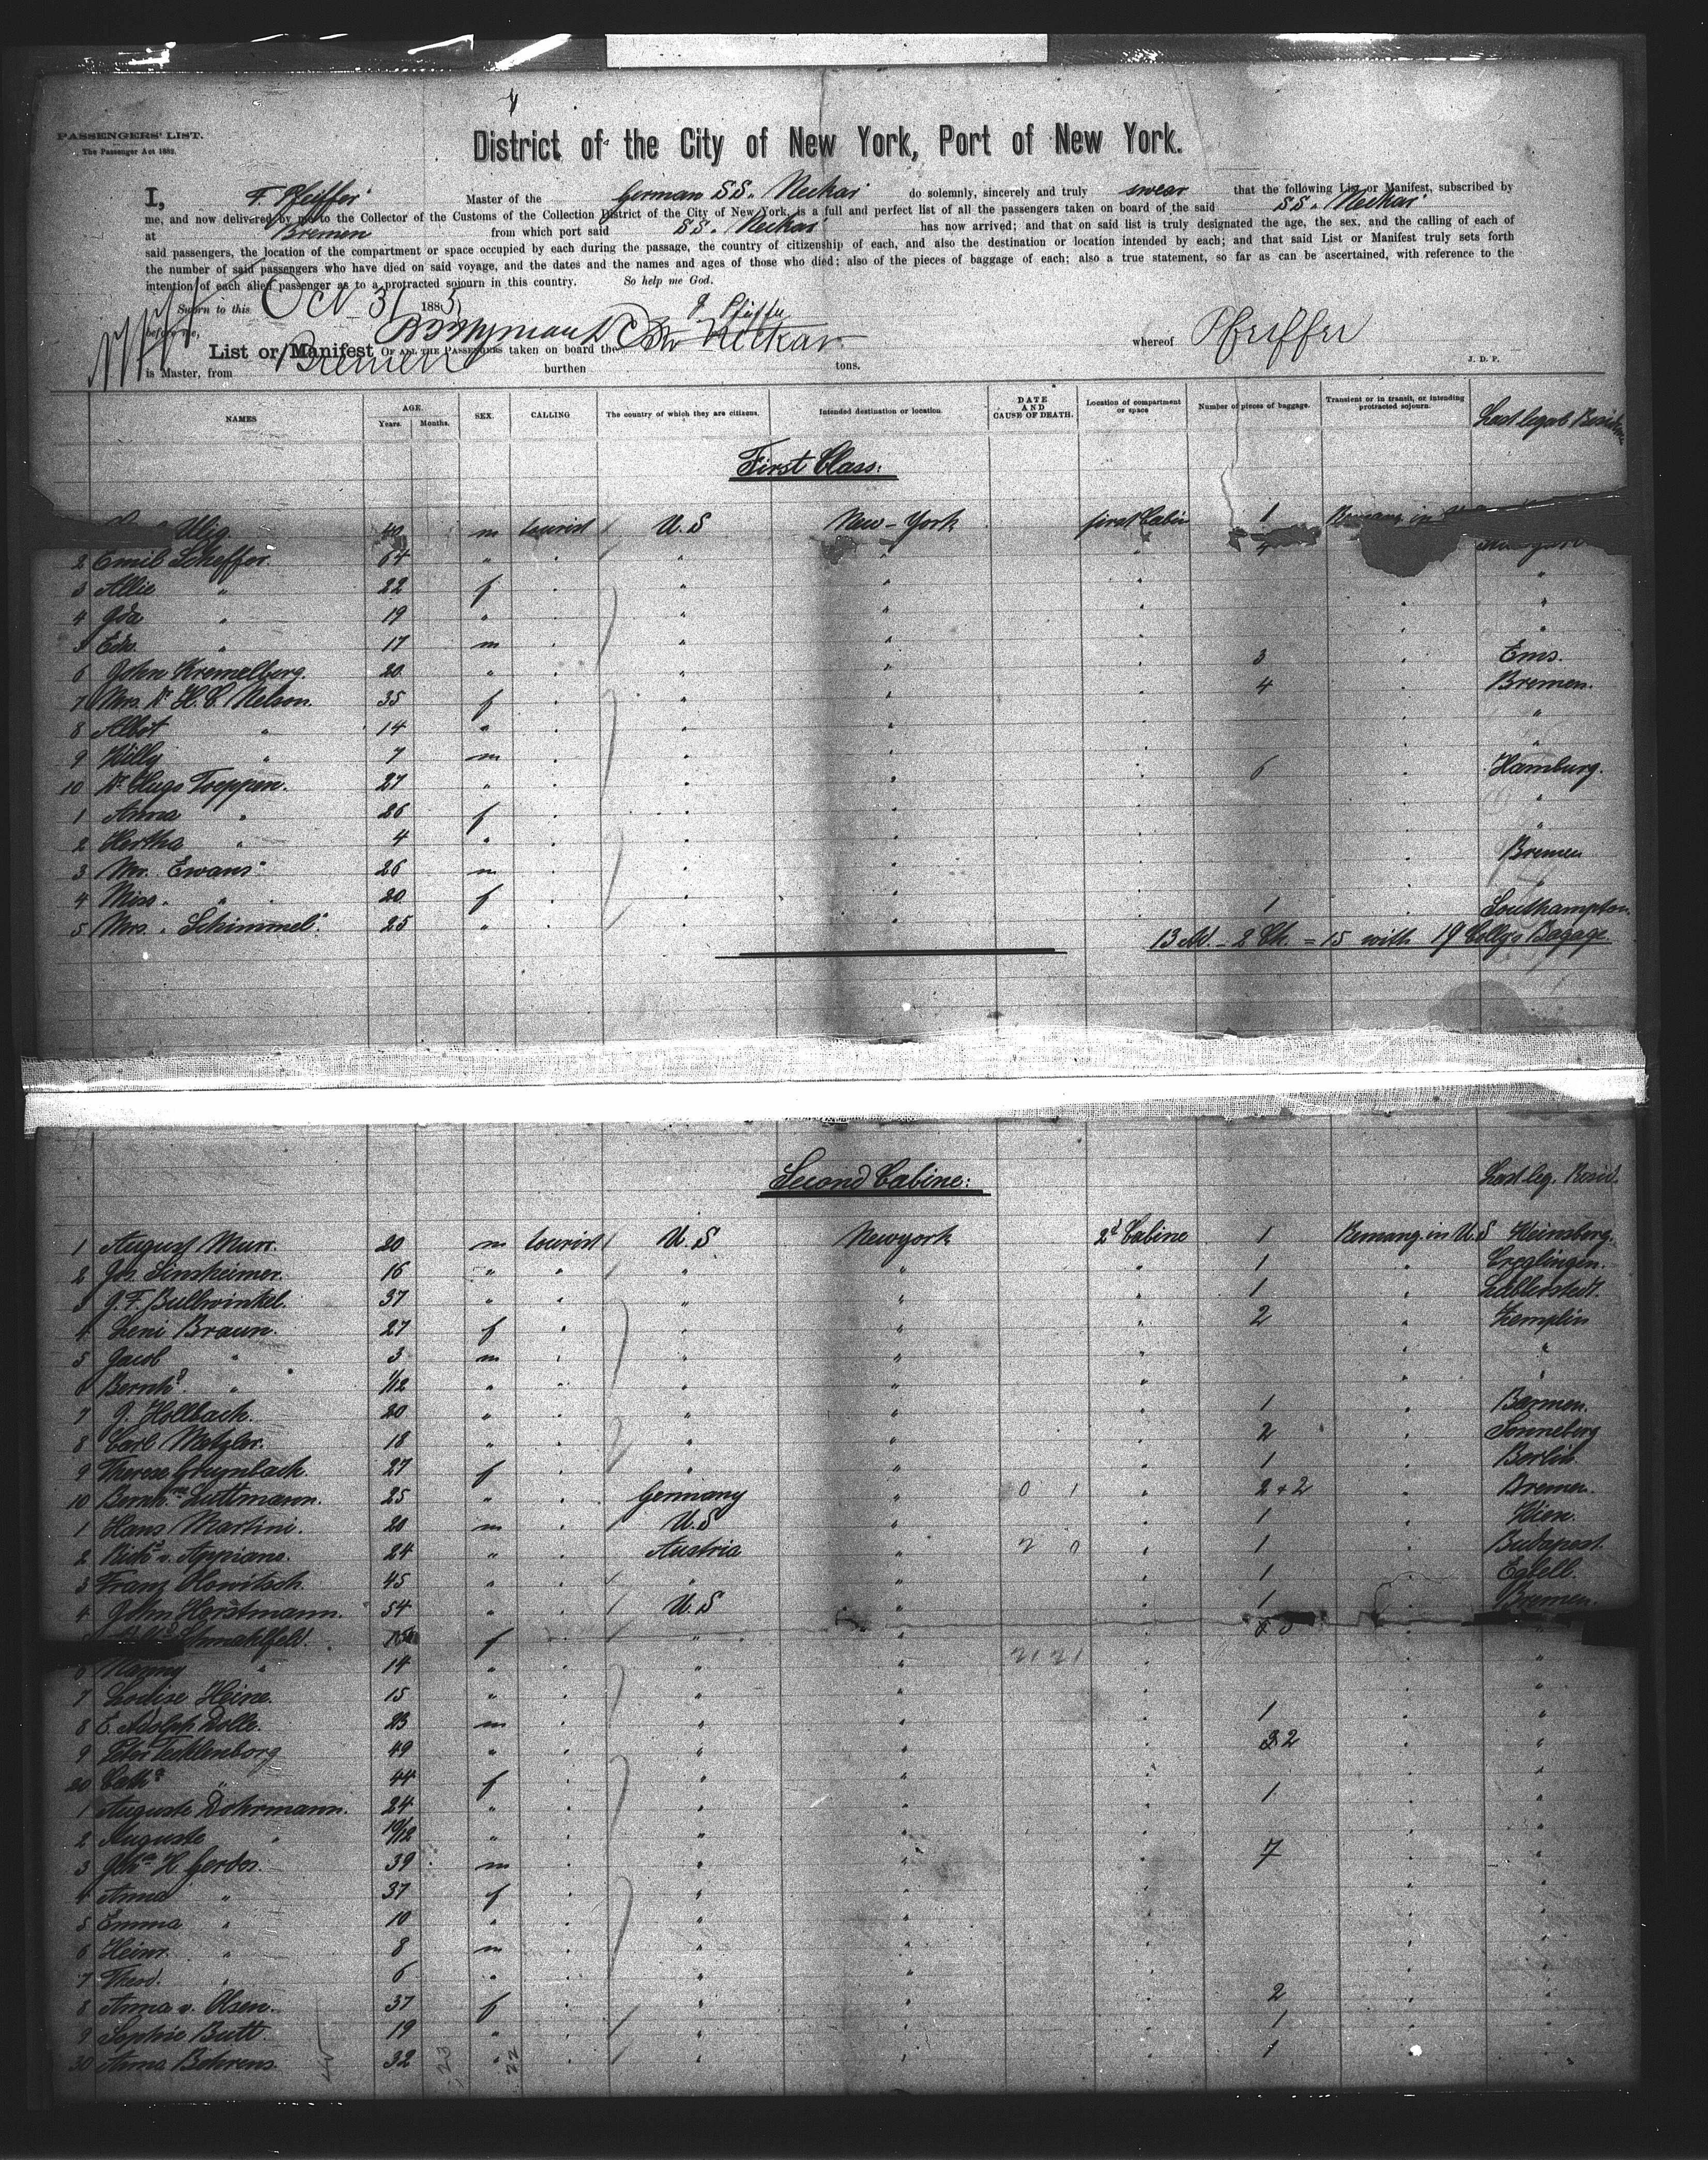 PASSENGERS' LIST.
The Passenger Act 1882.
District of the City of New York, Port of New York.
I, F. Pfeiffer Master of the German SS. Neckar do solemnly, sincerely and truly swear that the following List or Manifest, subscribed by
me, and now delivered by me to the Collector of the Customs of the Collection District of the City of New York, is a full and perfect list of all the passengers taken on board of the said SS. Neckar
at Bremen from which port said SS. Neckar has now arrived; and that on said list is truly designated the age, the sex, and the calling of each of
said passengers, the location of the compartment or space occupied by each during the passage, the country of citizenship of each, and also the destination or location intended by each; and that said List or Manifest truly sets forth
the number of said passengers who have died on said voyage, and the dates and the names and ages of those who died; also of the pieces of baggage of each; also a true statement, so far as can be ascertained, with reference to the
intention of each alien passenger as to a protracted sojourn in this country. So help me God.
Sworn to this Oct 31 1885 Pfeiffer
before me,
List or Manifest OF ALL THE PASSENGERS taken on board the Neckar whereof Pfeiffer
is Master, from Bremen burthen tons. J. D. P.
NAMES AGE. Years. Months. SEX. CALLING The country of which they are citizens. Intended destination or location. DATE AND CAUSE OF DEATH. Location of compartment or space Number of pieces of baggage. Transient or in transit, or intending protracted sojourn. Last legal Residence
First Class:
Ulig 40 m tourist U.S New-York first Cabin 1 Remang in
2 Emil Scheffer 64 " " " " "
3 Allie " 22 f " " " " " "
4 Ida " 19 " " " " " " "
5 Edw. " 17 m " " " " " "
6 John Kremelberg. 20 " " " " " 3 " Ems.
7 Mrs. Dr H. C. Nelson. 35 f " " " " 4 " Bremen.
8 Albot " 14 " " " " " " "
9 Willy " 7 m " " " " " "
10 Dr Hugo Toeppen. 27 " " " " " 6 " Hamburg.
1 Anna " 26 f " " " " " "
2 Hertha " 4 " " " " " " "
3 Mr. Ewans 26 m " " " " " Bremen
4 Miss. " 20 f " " " " " "
5 Mrs. Schimmel 25 " " " " " 1 " Southampton
13 Ad. - 2 Ch. = 15 with 19 Colly's Bagage
Second Cabine: Last leg. Resid.
1 August Murr. 20 m tourist U.S Newyork 2d Cabine 1 Remang. in U.S Heinsberg.
2 Jos. Sinsheimer. 16 " " " " " 1 " Creglingen.
3 J. F. Bullwinkel. 37 " " " " " 1 "
4 Leni Braun. 27 f " " " " 2 " Zemplin
5 Jacob " 3 m " " " " " "
6 Bernhd. " 1/12 " " " " " " "
7 J. Hollbach. 20 " " " " " 1 " Barmen.
8 Carl Metzler. 18 " " " " " 2 " Sonneberg
9 Therese Grumbach. 27 f " " " " 1 " Berlin
10 Bernhne Luttmann. 25 " " Germany " 0 1 " 2+2 " Bremen.
1 Hans Martini. 20 m " U.S " " 1 " Wien.
2 Richd v. Appiano. 24 " " Austria " 2 0 " 1 " Budapest.
3 Franz 45 " " " " " 1 "
4 John Horstmann. 54 " " U.S " " 1 " Bremen.
Schmahlfeld. f " " " " " "
6 Nanny " 14 " " " " " " "
7 Lodise Heine. 15 " " " " " " "
8 E. Adolph Dolle. 23 m " " " " 1 " "
9 Peter Tecklenborg 49 " " " " " 2 " "
20 Catha " 44 f " " " " " "
1 Auguste Dohrmann. 24 " " " " " 1 " "
2 Auguste " 10/12 " " " " " " "
3 H Gerdes. 39 m " " " " 7 " "
4 Anna " 37 f " " " " " "
5 Emma " 10 " " " " " " "
6 Heinr. " 8 m " " " " " "
7 Theod. " 6 " " " " " " "
8 Anna v. Olsen. 37 f " " " " 2 " "
9 Sophie Butt. 19 " " " " " 1 " "
30 Anna Behrens 32 " " " " " 1 " "